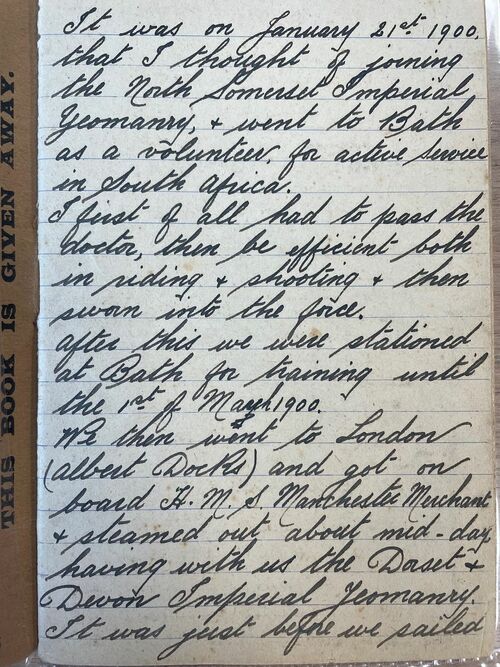 THIS BOOK IS GIVEN AWAY.
It was on January 21st 1900,
that I thought of joining
the North Somerset Imperial
Yeomanry, & went to Bath
as a volunteer, for active service
in South Africa.
I first of all had to pass the
doctor, then be efficient both
in riding & shooting & then
sworn into the force.
after this we were stationed
at Bath for training until
the 1st of 1900.
We then went to London
(Albert Docks) and got on
board H. M. S. Manchester Merchant
& steamed out about mid-day,
having with us the Doset &
Devon Imperial Yeomanry.
It was just before we sailed